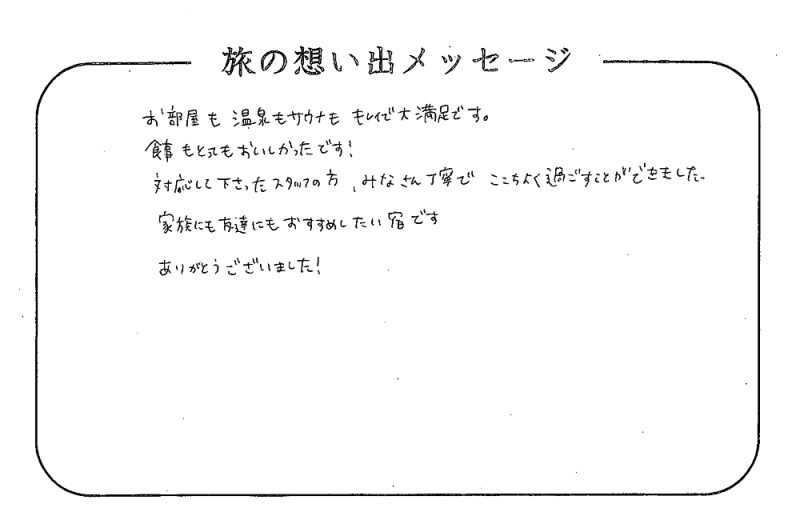 旅の想い出メッセージ
お部屋も 温泉もサウナも キレイで大満足です。
食事もとってもおいしかったです!
対応して下さったスタッフの方、みなさん丁寧で ここちよく過ごすことができました。
家族にも友達にもおすすめしたい宿です
ありがとうございました!